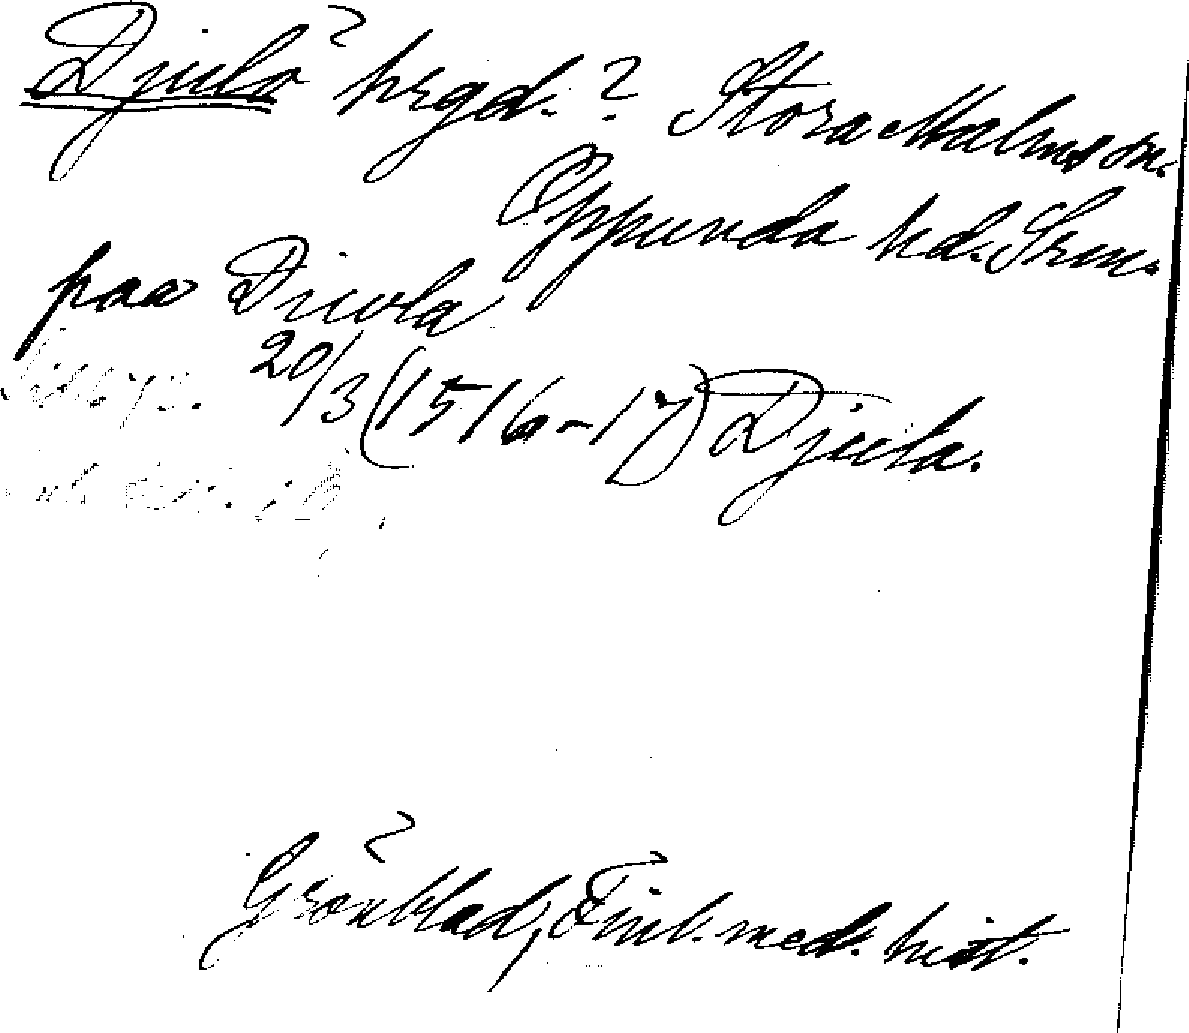 Djulö hrgd.? Stora Malms sn.
Oppunda hd. Srm.
paa Diwla
20/3 (1516-17) Djula.
Grönblad, Finl. med. hist.